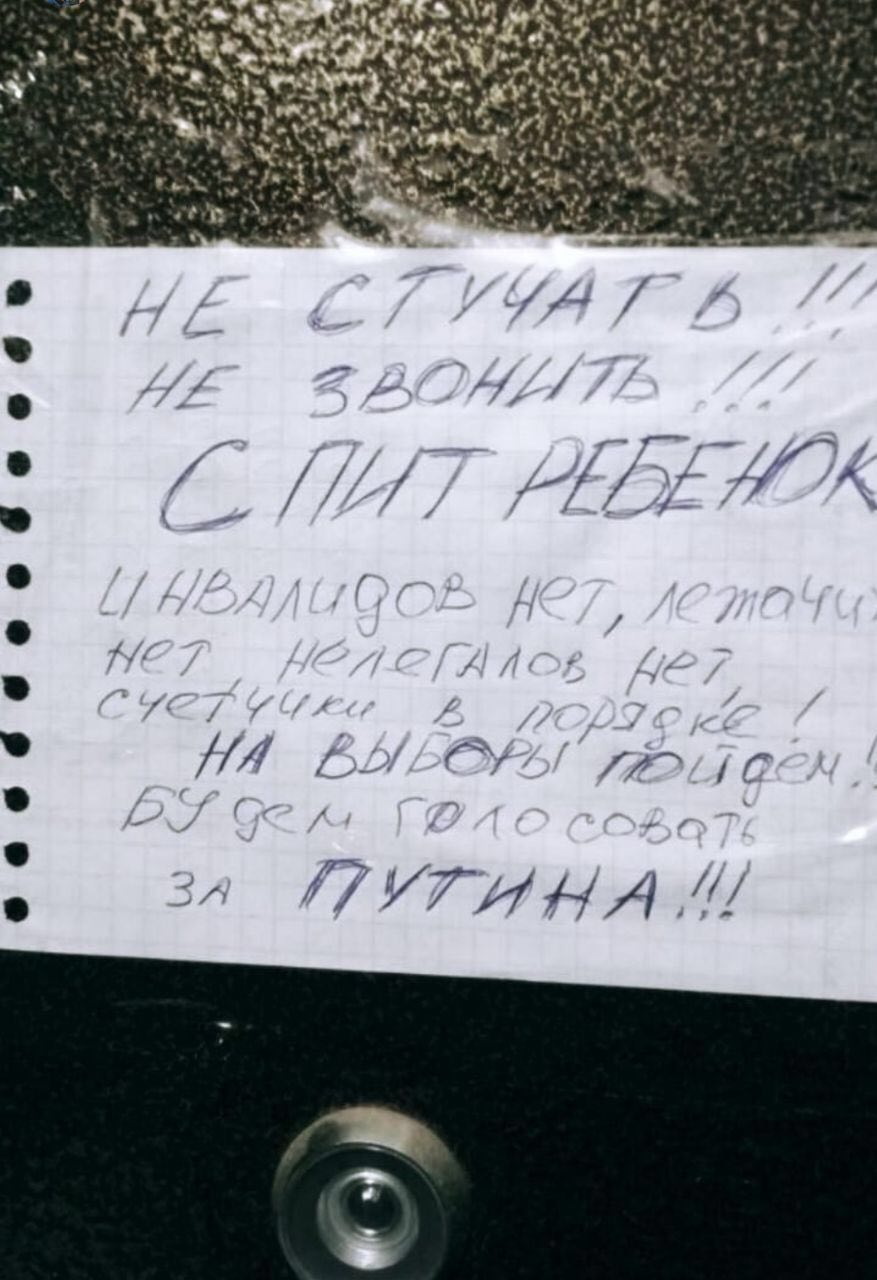 НЕ СТУЧАТЬ!!!
НЕ ЗВОНИТЬ!!!
СПИТ РЕБЕНОК
ИНВАЛИДОВ НЕТ, лежачих
нет, нелегалов нет,
счетчики в порядке!
НА ВЫБОРЫ пойдем!!
Будем голосовать
ЗА ПУТИНА!!!